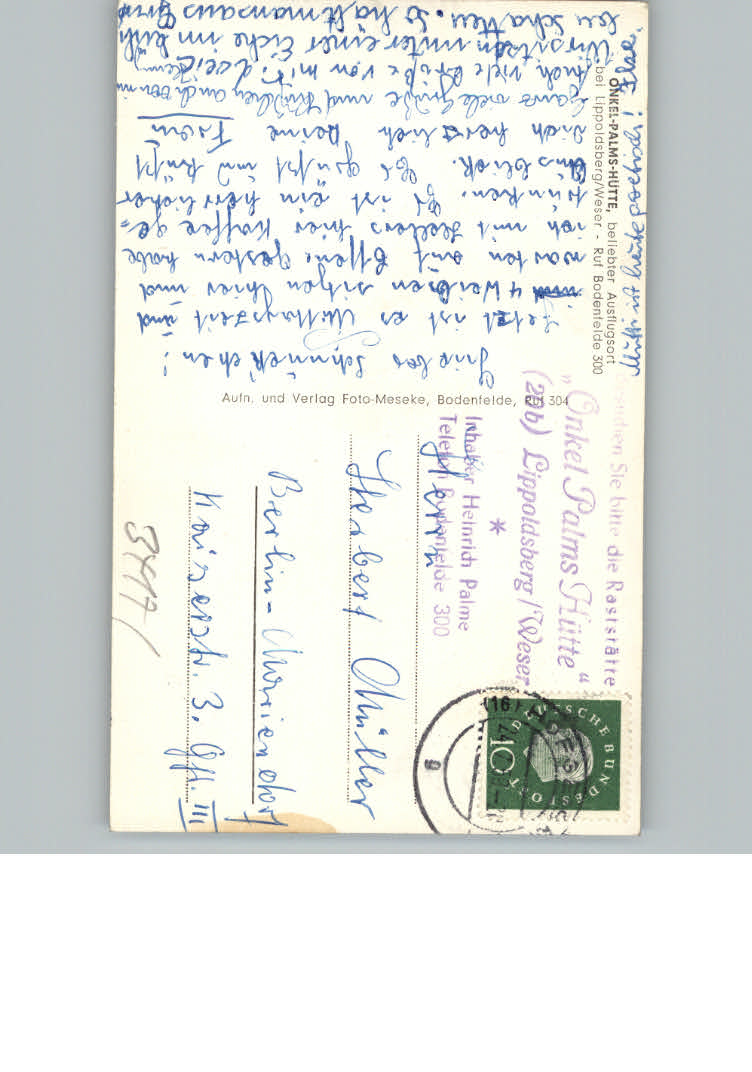 ONKEL-PALMS-HÜTTE, beliebter Ausflugsort
bei Lippoldsberg/Weser - Ruf Bodenfelde 300
Aufn. und Verlag Foto-Meseke, Bodenfelde, Ruf 304
Besuchen Sie bitte die Raststätte
„Onkel Palms Hütte“
(20b) Lippoldsberg/Weser
*
Inhaber Heinrich Palme
Telefon Bodenfelde 300
DEUTSCHE BUNDESPOST
10
(16) HOFG
g
Herrn
Herbert Müller
Berlin-Mariendorf
Kaiserstr. 3. Gfl. III
3417/
Liebes Schnuckchen!
Jetzt ist es Mittagszeit und
4 Weiber sitzen hier und
warten aufs Essen. Gestern habe
ich mit Hellers hier Kaffee ge=
trunken. Es ist ein herrlicher
Ausblick. Es grüßt und küßt
Dich herzlich Deine
Ganz viele Grüße und Küßchen auch von
Auch viele Grüße von mir,
Wir sitzen unter einer Eiche im kühl
len Schatten. So hält man's aus